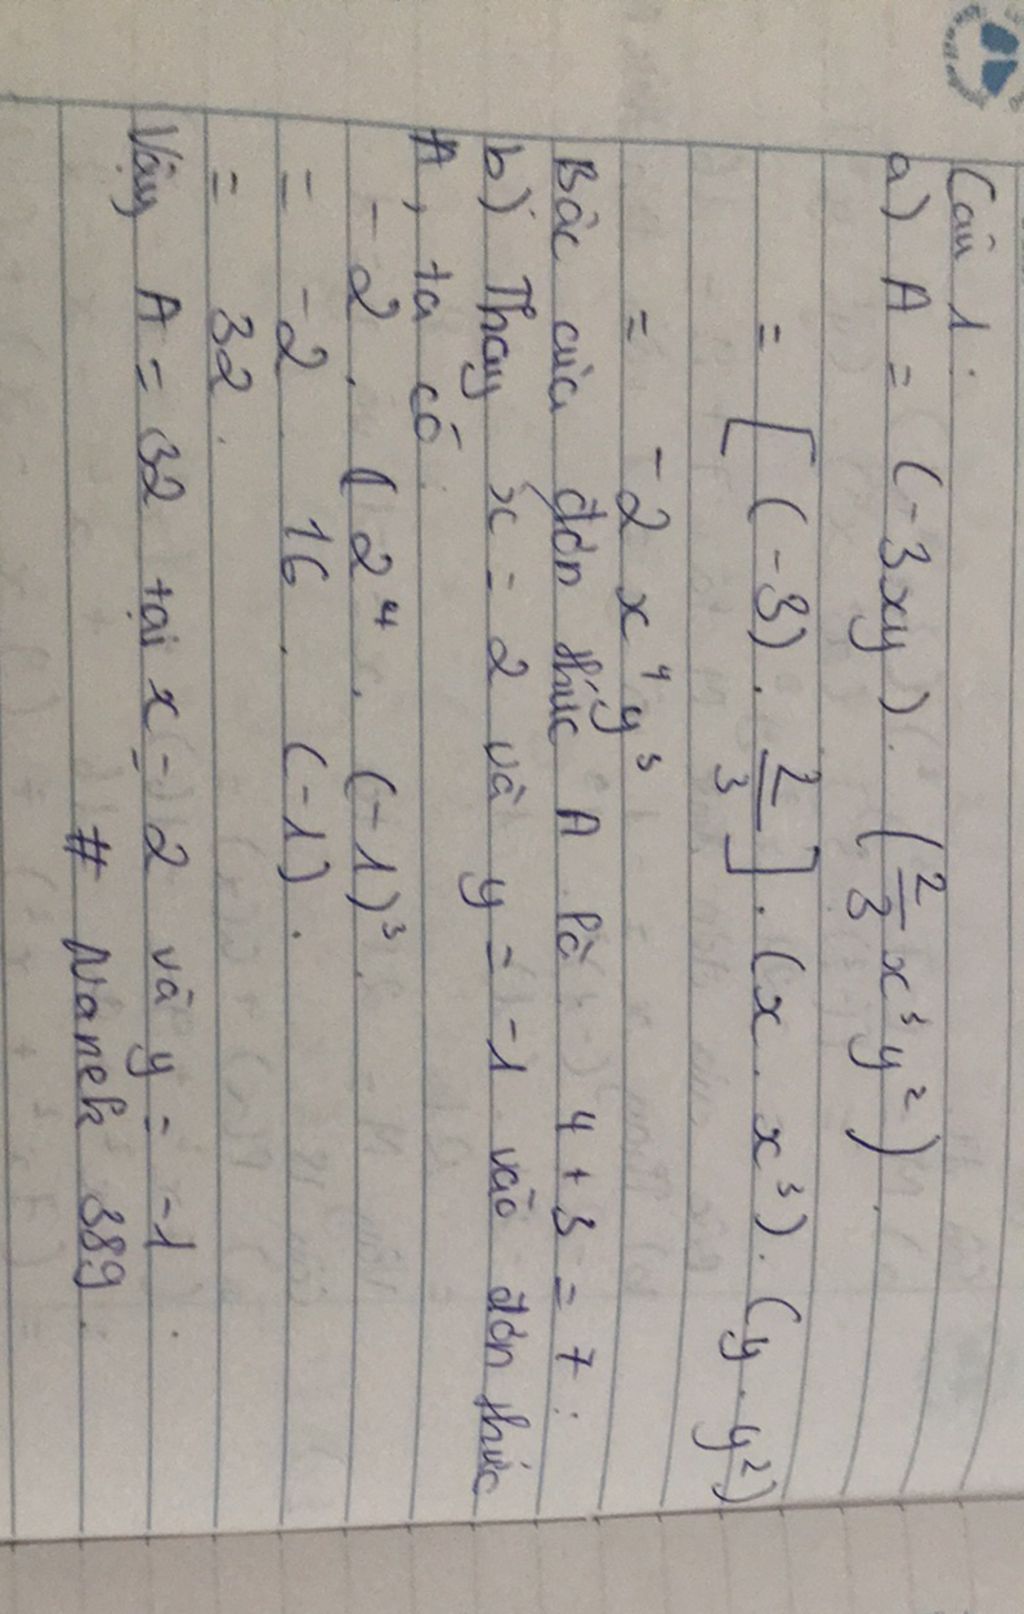 Câu 1:
a) A = (-3xy). (2/3 x³y²)
= [(-3). 2/3]. (x. x³). (y. y²)
= -2x⁴y³
Bậc của đơn thức A là 4+3=7.
b) Thay x = 2 và y = -1 vào đơn thức
A, ta có
-2. (2⁴. (-1)³
= -2. 16. (-1).
= 32.
Vậy A = 32 tại x = 2 và y = -1.
# Nanek 389.